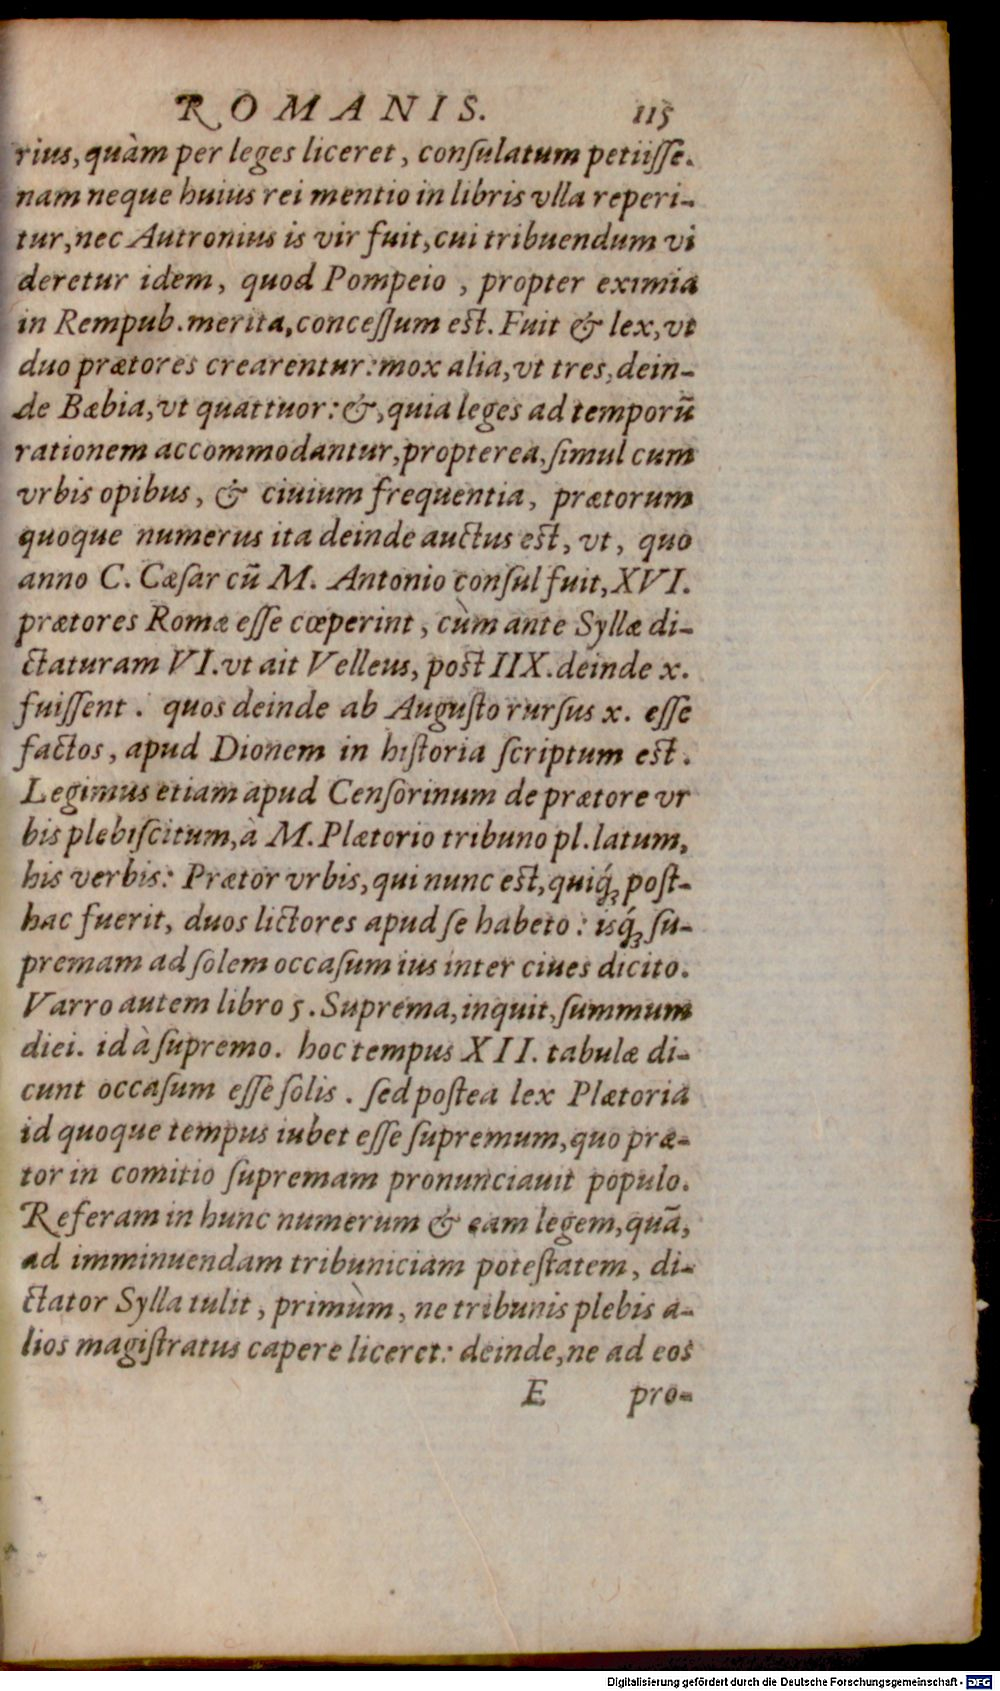 ROMANIS. 115
rius, quàm per leges liceret, conſulatum petiiſſe.
nam neque huius rei mentio in libris vlla reperi-
tur, nec Autronius is vir fuit, cui tribuendum vi
deretur idem, quod Pompeio, propter eximia
in Rempub. merita, conceſſum est. Fuit & lex, vt
duo prætores crearentur: mox alia, vt tres, dein-
de Bæbia, vt quattuor: &, quia leges ad temporū
rationem accommodantur, propterea, ſimul cum
vrbis opibus, & ciuium frequentia, prætorum
quoque numerus ita deinde auctus est, vt, quo
anno C. Cæſar cū M. Antonio conſul fuit, XVI.
prætores Romæ eſſe cœperint, cùm ante Syllæ di-
ctaturam VI. vt ait Velleus, post IIX. deinde x.
fuiſſent. quos deinde ab Auguſto rurſus x. eſſe
factos, apud Dionem in hiſtoria ſcriptum est.
Legimus etiam apud Cenſorinum de prætore vr
bis plebiſcitum, à M. Plætorio tribuno pl. latum,
his verbis: Prætor vrbis, qui nunc est, quiq́ꝫ poſt-
hac fuerit, duos lictores apud ſe habeto: isq́ꝫ ſu-
premam ad ſolem occaſum ius inter ciues dicito.
Varro autem libro 5. Suprema, inquit, ſummum
diei. id à ſupremo. hoc tempus XII. tabulæ di-
cunt occaſum eſſe ſolis. ſed poſtea lex Plætoria
id quoque tempus iubet eſſe ſupremum, quo præ-
tor in comitio ſupremam pronunciauit populo.
Referam in hunc numerum & eam legem, quā,
ad imminuendam tribuniciam poteſtatem, di-
ctator Sylla tulit, primùm, ne tribunis plebis a-
lios magiſtratus capere liceret: deinde, ne ad eos
E pro-
Digitalisierung gefördert durch die Deutsche Forschungsgemeinschaft - DFG